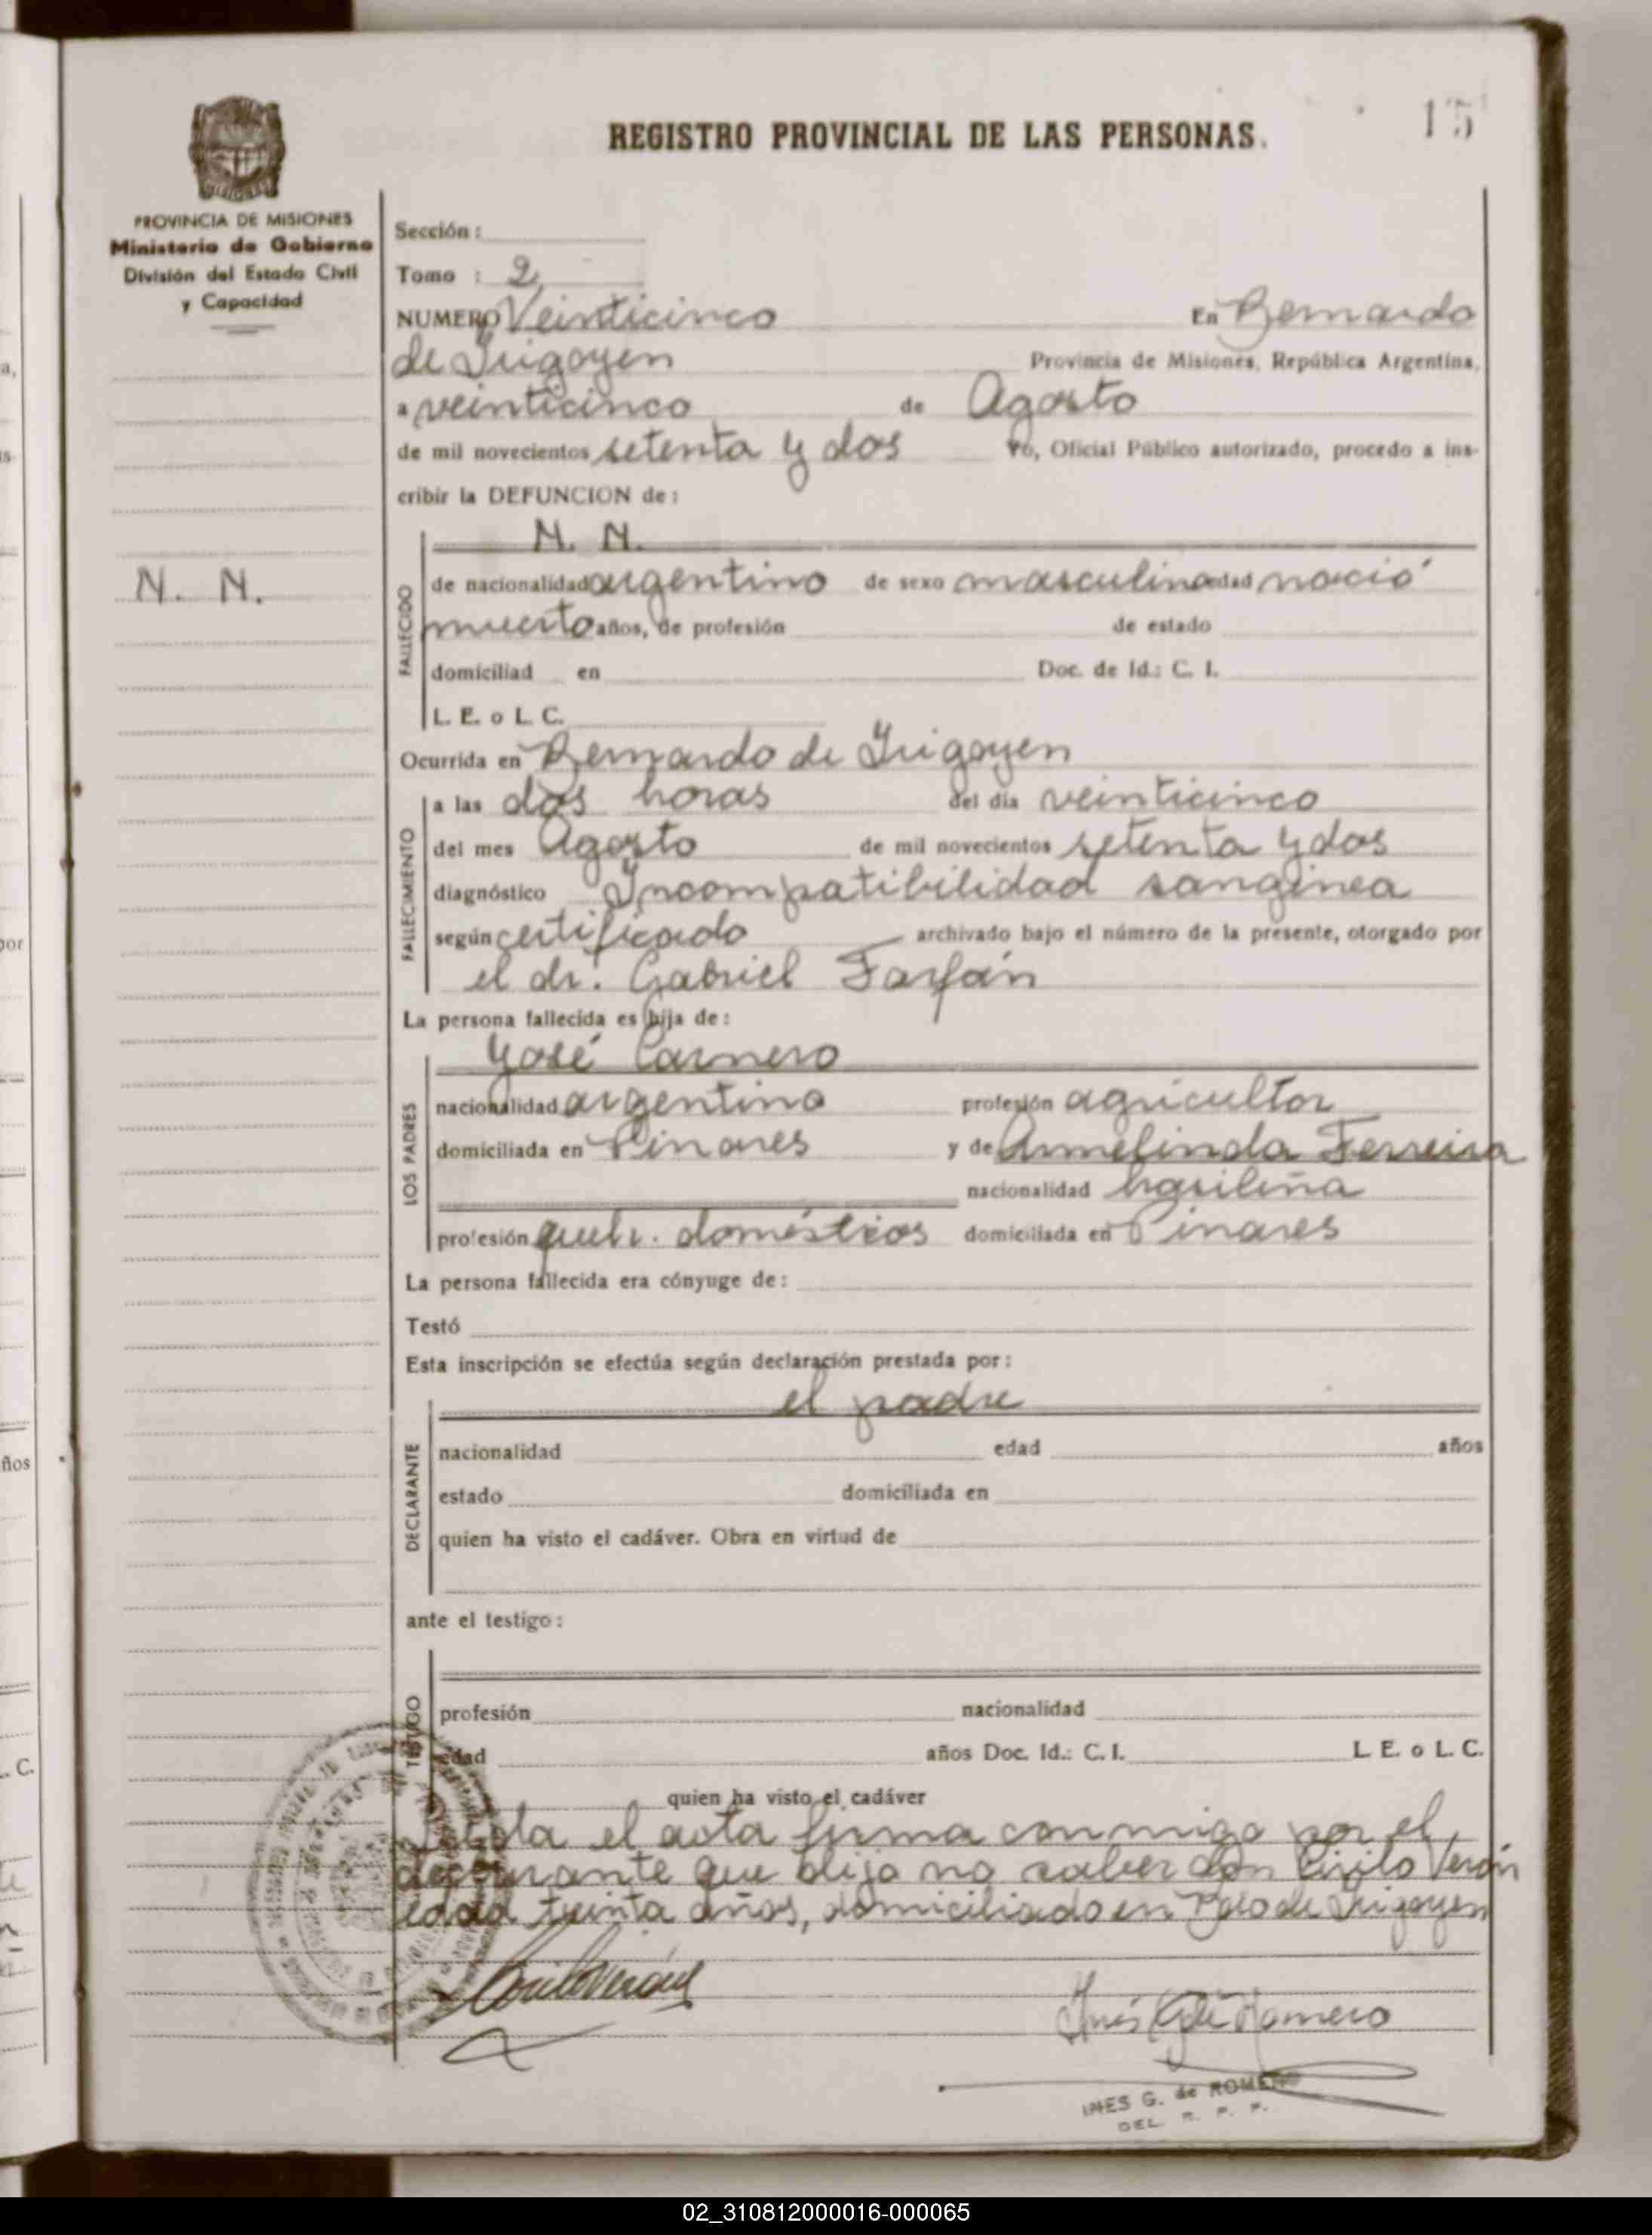 15
REGISTRO PROVINCIAL DE LAS PERSONAS.
PROVINCIA DE MISIONES
Ministerio de Gobierno
División del Estado Civil
y Capacidad
N. N.
Sección :
Tomo : 2
NUMERO Veinticinco En Bernardo
de Irigoyen Provincia de Misiones, República Argentina,
a veinticinco de Agosto
de mil novecientos setenta y dos Yo, Oficial Público autorizado, procedo a ins-
cribir la DEFUNCION de :
N. N.
FALLECIDO
de nacionalidad argentino de sexo masculino edad nació
muerto años, de profesión de estado
domiciliad en Doc. de Id.: C. I.
L. E. o L. C.
Ocurrida en Bernardo de Irigoyen
FALLECIMIENTO
a las dos horas del día veinticinco
del mes Agosto de mil novecientos setenta y dos
diagnóstico Incompatibilidad sanginea
según certificado archivado bajo el número de la presente, otorgado por
el dr. Gabriel Farfán
La persona fallecida es hija de :
LOS PADRES
José Carnero
nacionalidad argentina profesión agricultor
domiciliada en Pinares y de Armelinda Ferreira
nacionalidad brasileña
profesión queh. domésticos domiciliada en Pinares
La persona fallecida era cónyuge de :
Testó
Esta inscripción se efectúa según declaración prestada por :
DECLARANTE
el padre
nacionalidad edad años
estado domiciliada en
quien ha visto el cadáver. Obra en virtud de
ante el testigo :
TESTIGO
profesión nacionalidad
edad años Doc. Id.: C. I. L. E. o L. C.
quien ha visto el cadáver
Leida el acta firma conmigo por el
declarante que dijo no saber don Cirilo Verón
edad treinta años, domiciliado en Bdo de Irigoyen
Inés G de Romero
INES G. de ROMERO
DEL. R. P. P.
02_310812000016-000065